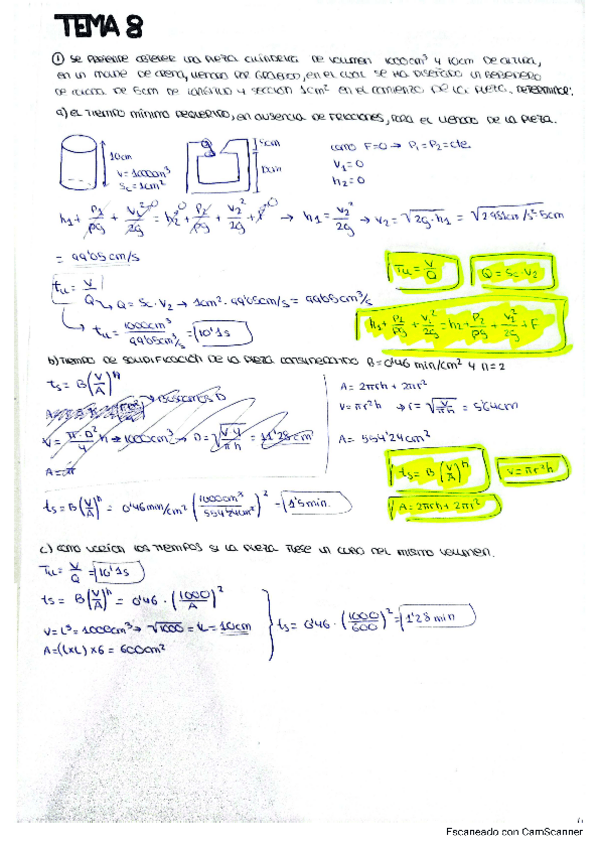 TEMA 8
① Se pretende obtener una pieza cilíndrica de volumen 1000cm³ y 10cm de altura,
en un molde de arena, llenado por gravedad, en el cual se ha diseñado un bebedero
de colada de 5cm de longitud y sección 1cm² en el comienzo de la pieza. Determinar:
a) El tiempo mínimo requerido, en ausencia de fricciones, para el llenado de la pieza.
10cm
V=1000cm³
Sc=1cm²
5cm
10cm
como F=0 → P₁=P₂=cte.
V₁=0
h₂=0
h₁ + P₁/ρg + V₁²/2g = h₂ + P₂/ρg + V₂²/2g + F → h₁ = V₂²/2g → V₂ = √2g·h₁ = √2·981cm/s²·5cm
= 99'05cm/s
tll = V/Q
Q = Sc·V₂ → 1cm²·99'05cm/s = 99'05cm³/s
tll = 1000cm³/99'05cm³/s = 10'1s
Tll = V/Q
Q = Sc·V₂
h₁ + P₁/ρg + V₁²/2g = h₂ + P₂/ρg + V₂²/2g + F
b) Tiempo de solidificación de la pieza considerando B=0'46 min/cm² y n=2
ts = B(V/A)ⁿ
→ Buscamos D
V = π·D²/4 h = 1000cm³ → D = √V·4/πh = 11'28cm
A = π
A = 2πrh + 2πr²
V = πr²h → r = √V/πh = 5'64cm
A = 554'24cm²
ts = B(V/A)ⁿ
V = πr²h
A = 2πrh + 2πr²
ts = B(V/A)ⁿ = 0'46min/cm² (1000cm³/554'24cm²)² = 1'5min.
c) Como varían los tiempos si la pieza fuese un cubo del mismo volumen.
Tll = V/Q = 10'1s
ts = B(V/A)ⁿ = 0'46·(1000/A)²
V = L³ = 1000cm³ → √1000 = L = 10cm
A = (L×L)×6 = 600cm²
ts = 0'46·(1000/600)² = 1'28 min
Escaneado con CamScanner